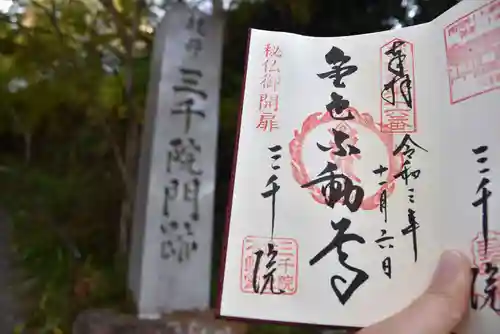 三千院門跡
奉拝
令和三年
十一月六日
金色不動尊
秘仏御開扉
三千院
三千院